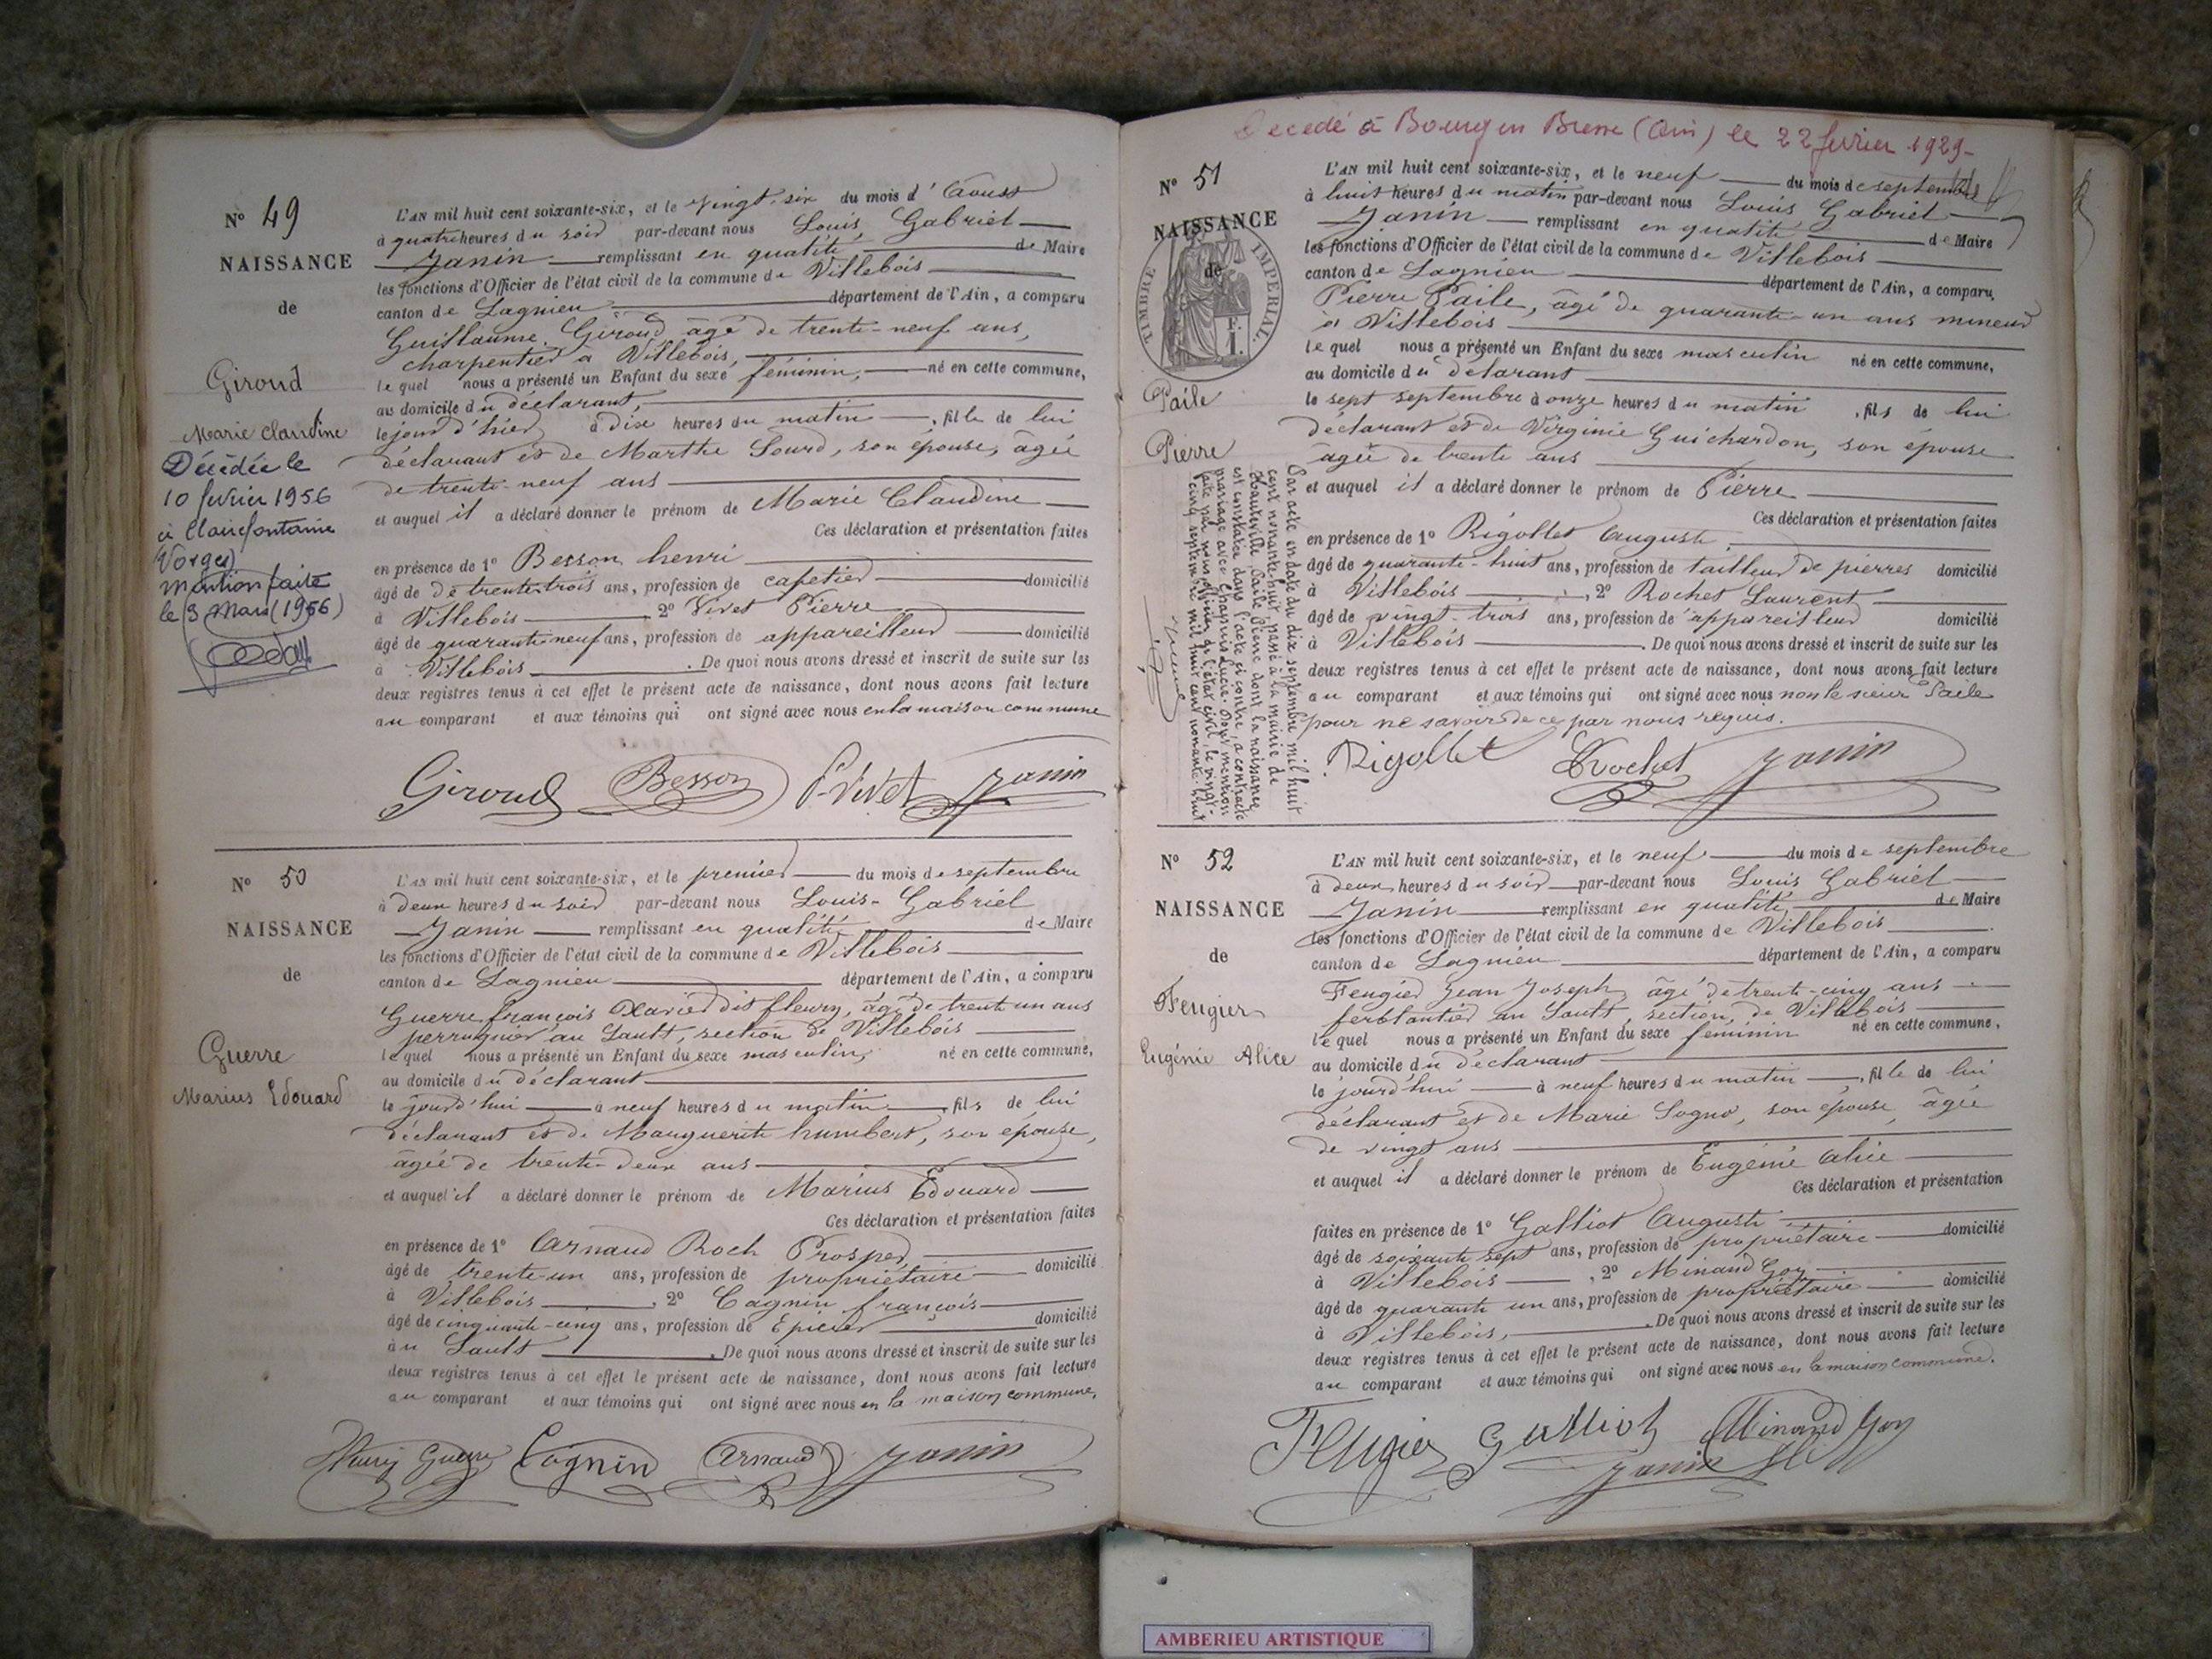 N° 49
NAISSANCE
de
Giroud
Marie Claudine
Décédée le
10 fevrier 1956
à Clairefontaine
(Vosges)
Mention faite
le 3 Mars (1956)
L'AN mil huit cent soixante-six, et le vingt-six du mois d'Aoust
à quatre heures du soir par-devant nous Louis, Gabriel
Janin remplissant en qualité de Maire
les fonctions d'Officier de l'état civil de la commune de Villebois
canton de Lagnieu département de l'Ain, a comparu
Guillaume Giroud âgé de trente-neuf ans,
charpentier a Villebois,
lequel nous a présenté un Enfant du sexe féminin, né en cette commune,
au domicile du déclarant,
le jour d'hier à dix heures du matin, fille de lui
déclarant et de Marthe Sourd, son epouse, âgée
de trente neuf ans
et auquel il a déclaré donner le prénom de Marie Claudine
Ces déclaration et présentation faites
en présence de 1° Besson henri
âgé de de trente trois ans, profession de cafetier domicilié
à Villebois, 2° Vivet Pierre
âgé de quarante neuf ans, profession de appareilleur domicilié
à Villebois. De quoi nous avons dressé et inscrit de suite sur les
deux registres tenus à cet effet le présent acte de naissance, dont nous avons fait lecture
au comparant et aux témoins qui ont signé avec nous en la maison commune
Giroud Besson P. Vivet Janin
N° 50
NAISSANCE
de
Guerre
Marius Edouard
L'AN mil huit cent soixante-six, et le premier du mois de septembre
à deux heures du soir par-devant nous Louis-Gabriel
Janin remplissant en qualité de Maire
les fonctions d'Officier de l'état civil de la commune de Villebois
canton de Lagnieu département de l'Ain, a comparu
Guerre françois Xavier dit fleury, âgé de trent un ans
perruquier au Sault, section de Villebois
lequel nous a présenté un Enfant du sexe masculin, né en cette commune,
au domicile du déclarant
le jourd'hui à neuf heures du matin, fils de lui
déclarant et de Marguerite humbert, son épouse,
âgée de trente-deux ans
et auquel il a déclaré donner le prénom de Marius Edouard
Ces déclaration et présentation faites
en présence de 1° Arnaud Roch Prosper
âgé de trente-un ans, profession de propriétaire domicilié
à Villebois, 2° Cagnin françois
âgé de cinquante-cinq ans, profession de Epicier domicilié
au Sault. De quoi nous avons dressé et inscrit de suite sur les
deux registres tenus à cet effet le présent acte de naissance, dont nous avons fait lecture
au comparant et aux témoins qui ont signé avec nous en la maison commune,
Fleury Guerre Cagnin Arnaud Janin
Decedé à Bourg en Bresse (Ain) le 22 fevrier 1929-
N° 51
NAISSANCE
de
TIMBRE IMPERIAL
1 F.
Paile
Pierre
Par acte en date du dix septembre mil huit
cent nonante-huit passé à la mairie de
Hauteville, Paile Pierre dont la naissance
est constatée dans l'acte ci contre, a contracté
mariage avec Chapuis Lucie. Dont mention
faite par nous officier de l'état civil, le vingt-
cinq septembre mil huit cent nonante-huit
L'AN mil huit cent soixante-six, et le neuf du mois de septembre
à huit heures du matin par-devant nous Louis, Gabriel
Janin remplissant en qualité de Maire
les fonctions d'Officier de l'état civil de la commune de Villebois
canton de Lagnieu département de l'Ain, a comparu
Pierre Paile, âgé de quarante-un ans mineur
à Villebois
lequel nous a présenté un Enfant du sexe masculin né en cette commune,
au domicile du délarant
le sept septembre à onze heures du matin, fils de lui
déclarant et de Virginie Guichardon, son épouse
âgée de trente ans
et auquel il a déclaré donner le prénom de Pierre
Ces déclaration et présentation faites
en présence de 1° Rigollet Auguste
âgé de quarante-huit ans, profession de tailleur de pierres domicilié
à Villebois, 2° Rochet Laurent
âgé de vingt-trois ans, profession de appareilleur domicilié
à Villebois. De quoi nous avons dressé et inscrit de suite sur les
deux registres tenus à cet effet le présent acte de naissance, dont nous avons fait lecture
au comparant et aux témoins qui ont signé avec nous non le sieur Paile
pour ne savoir de ce par nous requis.
Rigollet Rochet Janin
N° 52
NAISSANCE
de
Feugier
Eugénie Alice
L'AN mil huit cent soixante-six, et le neuf du mois de septembre
à deux heures du soir par-devant nous Louis Gabriel
Janin remplissant en qualité de Maire
les fonctions d'Officier de l'état civil de la commune de Villebois
canton de Lagnieu département de l'Ain, a comparu
Feugier Jean Joseph, âgé de trente-cinq ans
ferblantier au Sault, section de Villebois
lequel nous a présenté un Enfant du sexe féminin né en cette commune,
au domicile du déclarant
le jourd'hui à neuf heures du matin, fille de lui
déclarant et de Marie Sogno, son epouse, âgée
de vingt ans
et auquel il a déclaré donner le prénom de Eugénie Alice
Ces déclaration et présentation
faites en présence de 1° Galliot Auguste
âgé de soixante sept ans, profession de propriétaire domicilié
à Villebois, 2° Minand Goy
âgé de quarante un ans, profession de propriétaire domicilié
à Villebois, De quoi nous avons dressé et inscrit de suite sur les
deux registres tenus à cet effet le présent acte de naissance, dont nous avons fait lecture
au comparant et aux témoins qui ont signé avec nous en la maison commune.
Feugier Galliot Minand Goy
Janin
AMBERIEU ARTISTIQUE